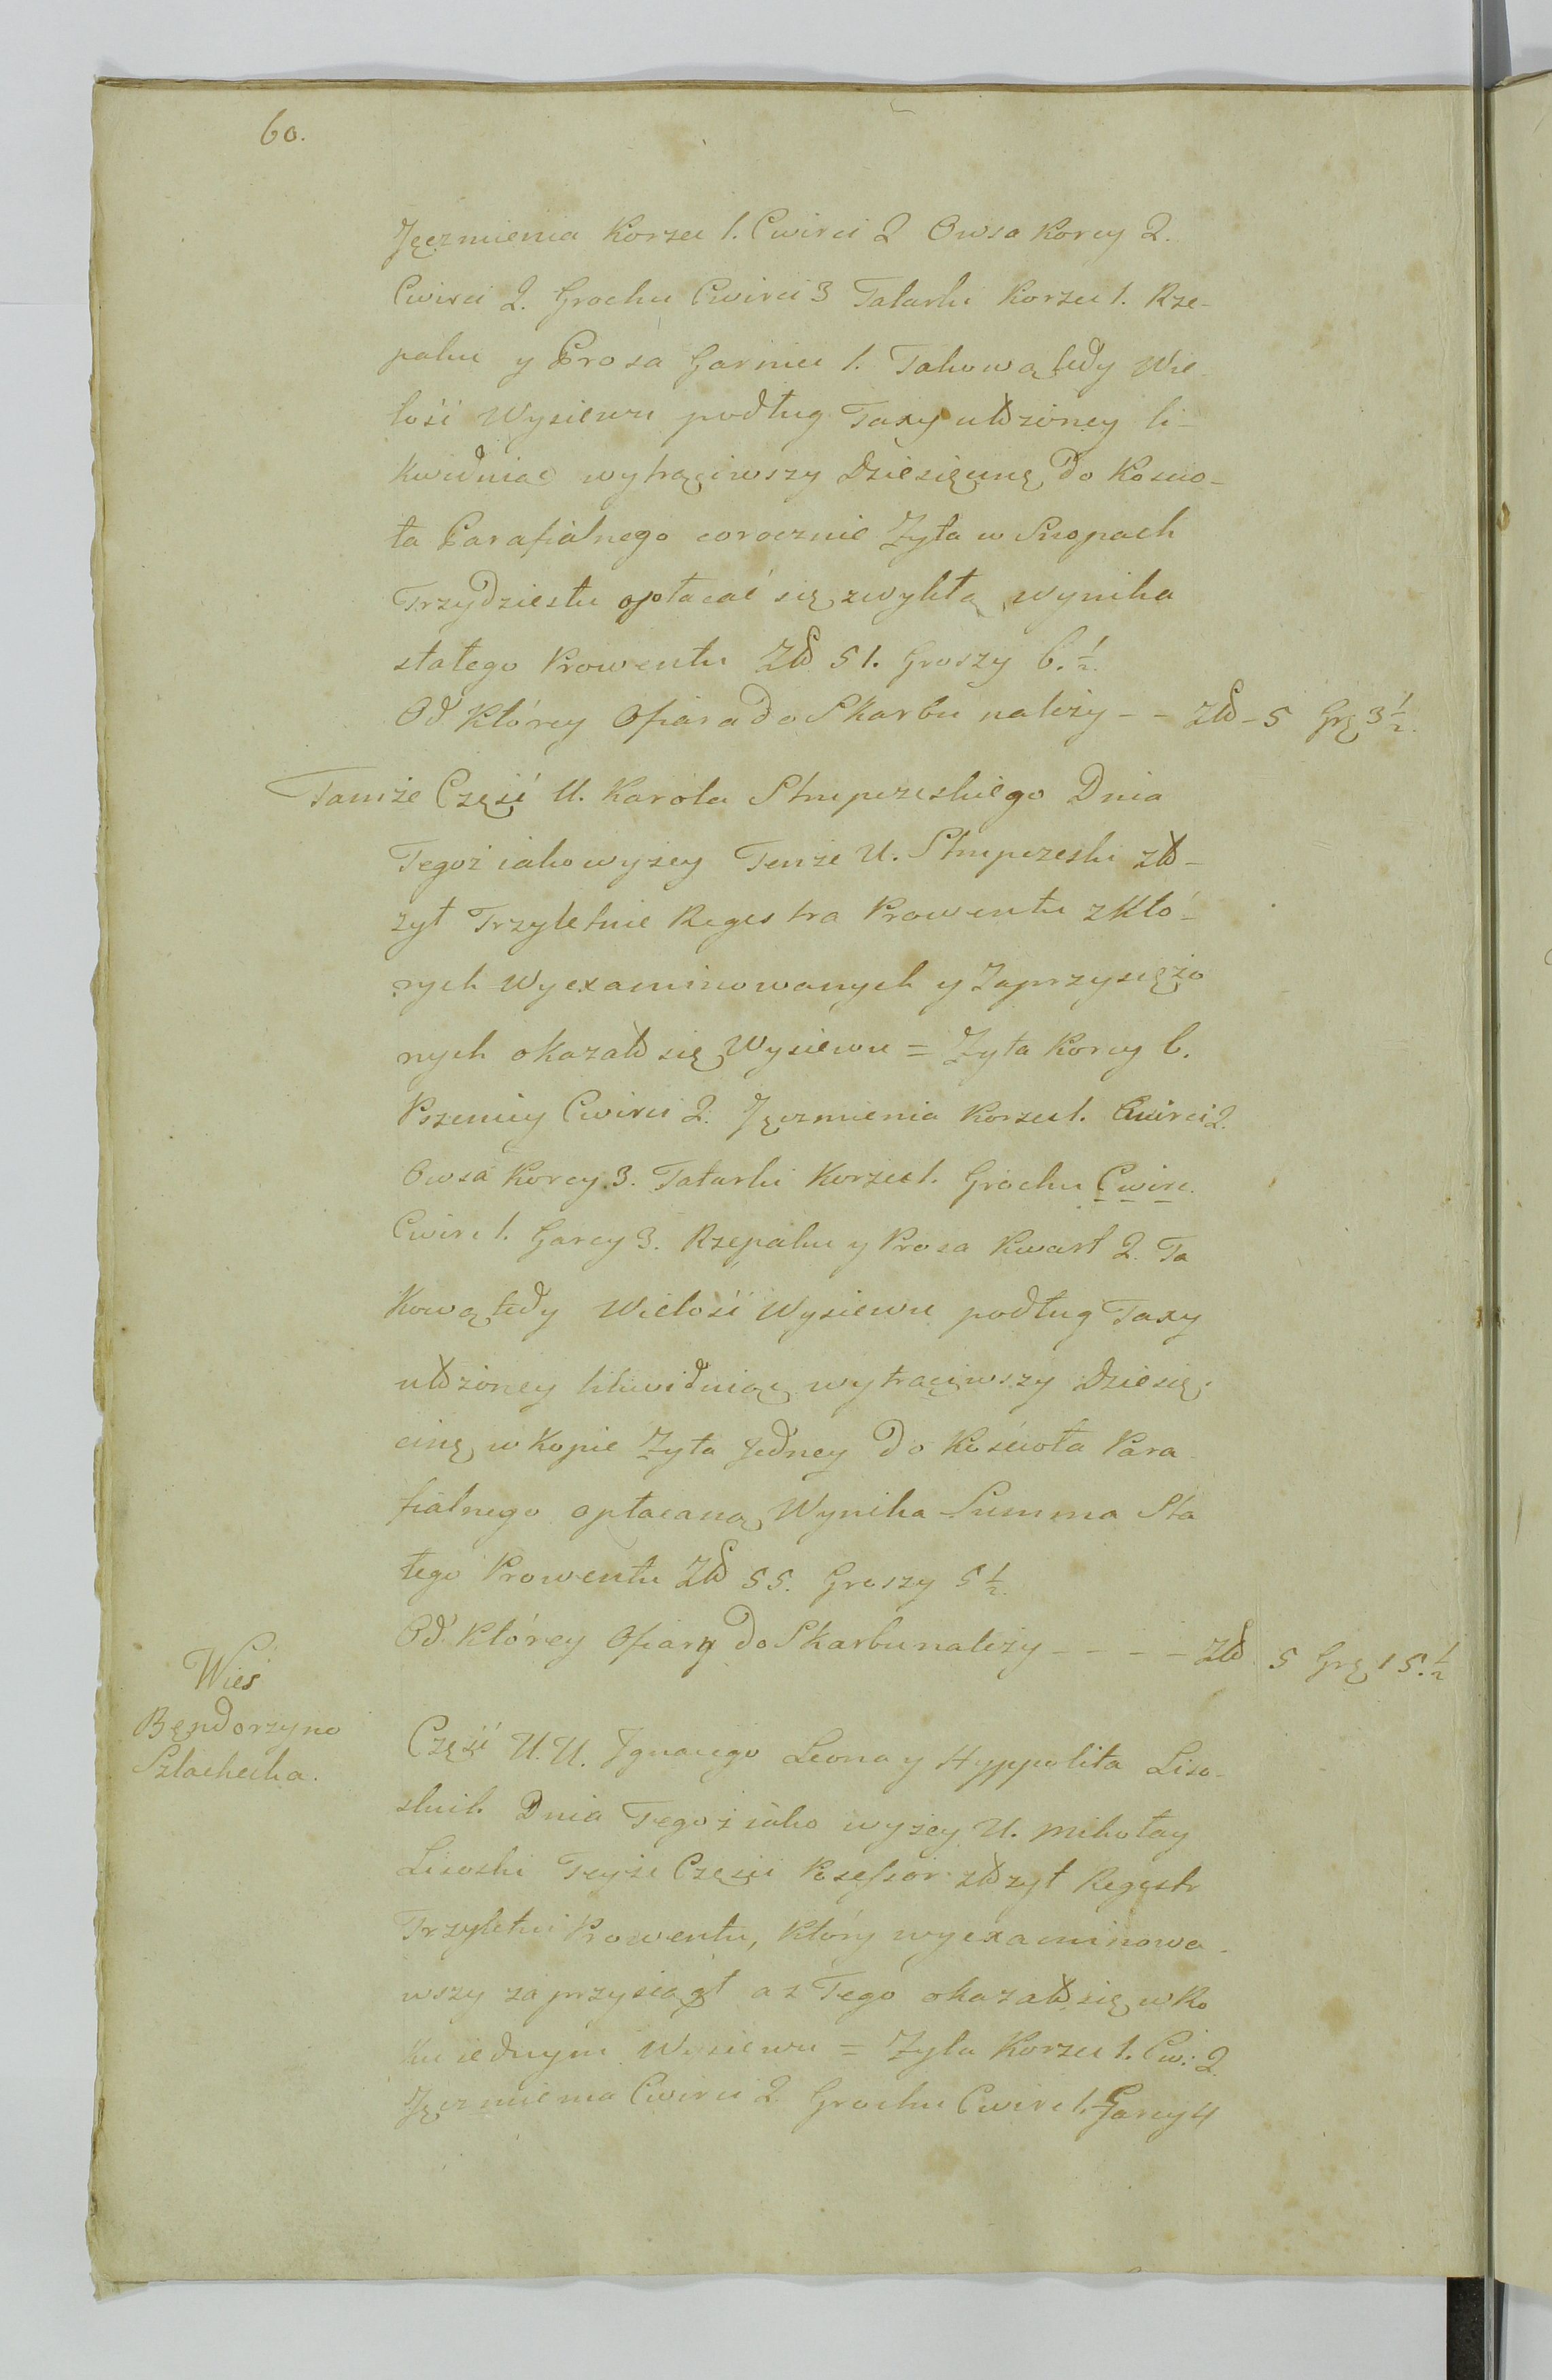 60.
Jęczmienia Korzec 1. Cwirci 2 Owsa Korcy 2.
Cwirci 2. Grochu Cwirci 3 Tatarki Korzec 1. Rze-
paku y Prosa Garniec 1. Takową tedy Wie-
lość Wysiewu podług Taxy ułożoney li-
kwiduiąc wytrąciwszy Dziesięcinę do Koscio-
ła Parafialnego corocznie Zyta w Snopach
Trzydziestu opłacać się zwykłą wynika
stałego Prowentu Zło 51. Groszy 6. ½.
Od Którey Ofiara do Skarbu należy - - Zło - 5 Grę 3 ½.
Tamże Część U. Karola Strupczeskiego Dnia
Tegoż iako wyżey Tenże U. Strupczeski zło-
żył Trzyletnie Regestra Prowentu z Któ-
rych Wyexaminowanych y Zaprzysiężo
nych okazało się Wysiewu = Zyta Korcy 6.
Pszenicy Cwirci 2. Jęczmienia Korzec 1. Cwirci 2.
Owsa Korcy 3. Tatarki Korzec 1. Grochu Cwirc.
Cwirc 1. Garcy 3. Rzepaku y Prosa Kwart 2. Ta
Kową tedy Wielość Wysiewu podług Taxy
ułożoney likwiduiąc wytraciwszy Dziesię-
cinę w Kopie Zyta Jedney do Kościoła Para
fialnego opłacaną Wynika Summa Sta
łego Prowentu Zło 55. Groszy 5 ½.
Od Którey Ofiary do Skarbu należy - - - - Zło 5 Grę 15. ½
Wieś
Bęndorzyno
Szlachecka.
Część U. U. Jgnacego Leona y Hyppolita Liso-
skich Dnia Tegoż iako wyżey U. Mikołay
Lisoski Teyże Części Possessor złożył Regestr
Trzyletni Prowentu, Który wyexaminowa-
wszy zaprzysiągł a z Tego okazało się w Ro
ku iednym Wysiewu = Zyta Korzec 1. Cw: 2.
Jęczmienia Cwirci 2 Grochu Cwirc 1. Garcy 4